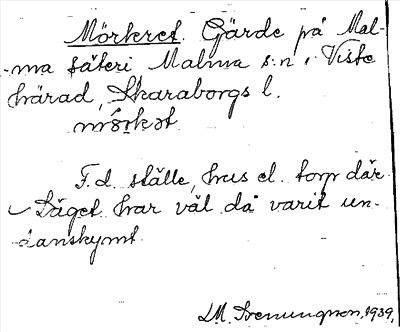 Mörkret. Gärde på Mal-
-ma säteri Malma s:n i Viste
härad, Skaraborgs l.
mörkət
F.d. ställe, hus el. torp där
Läget har väl då varit un-
danskymt.
1939.